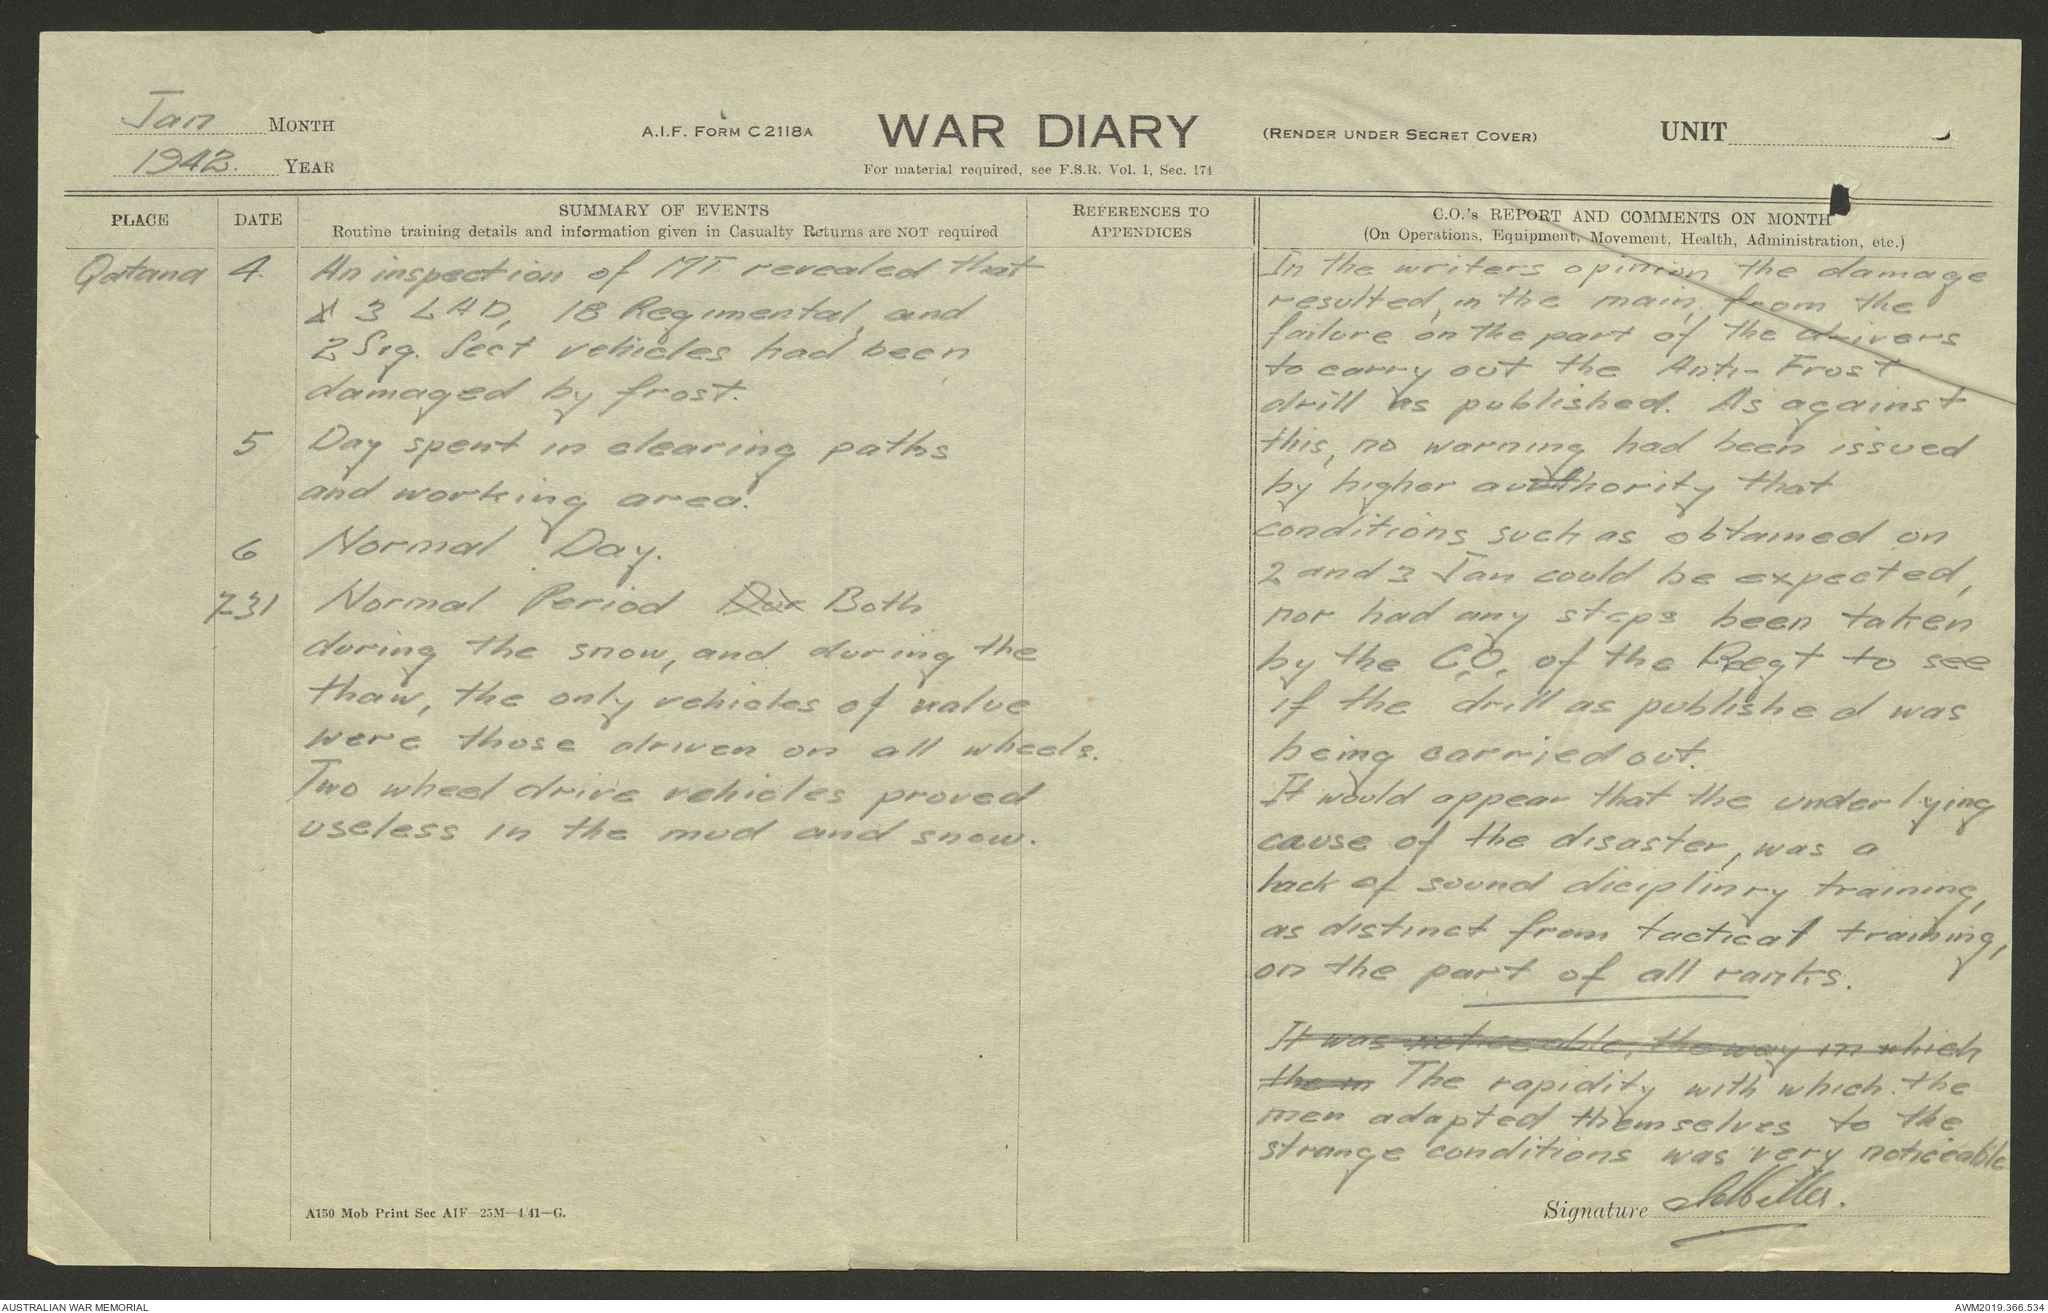 Jan MONTH
1942. YEAR
A.I.F. FORM C2118A
WAR DIARY
(RENDER UNDER SECRET COVER)
UNIT
For material required, see F.S.R. Vol. 1, Sec. 174
PLACE
DATE
SUMMARY OF EVENTS
Routine training details and information given in Casualty Returns are NOT required
REFERENCES TO
APPENDICES
C.O.'s REPORT AND COMMENTS ON MONTH
(On Operations, Equipment, Movement, Health, Administration, etc.)
Qatana 4. An inspection of MT revealed that
3 LAD, 18 Regimental, and
2 Sig. Sect vehicles had been
damaged by frost.
5 Day spent in clearing paths
and working area.
6 Normal Day.
7-31 Normal Period Both
during the snow, and during the
thaw, the only vehicles of value
were those driven on all wheels.
Two wheel drive vehicles proved
useless in the mud and snow.
In the writers opinion the damage
resulted, in the main, from the
failure on the part of the drivers
to carry out the Anti-Frost
drill as published. As against
this, no warning had been issued
by higher authority that
conditions such as obtained on
2 and 3 Jan could be expected,
nor had any steps been taken
by the C.O. of the Regt to see
if the drill as published was
being carried out.
It would appear that the underlying
cause of the disaster, was a
lack of sound diciplinry training,
as distinct from tactical training,
on the part of all ranks.
It was noticeable, the way in which
the m The rapidity with which the
men adapted themselves to the
strange conditions was very noticeable
Signature
A150 Mob Print Sec AIF—25M—4/41—G.
AUSTRALIAN WAR MEMORIAL
AWM2019.366.534